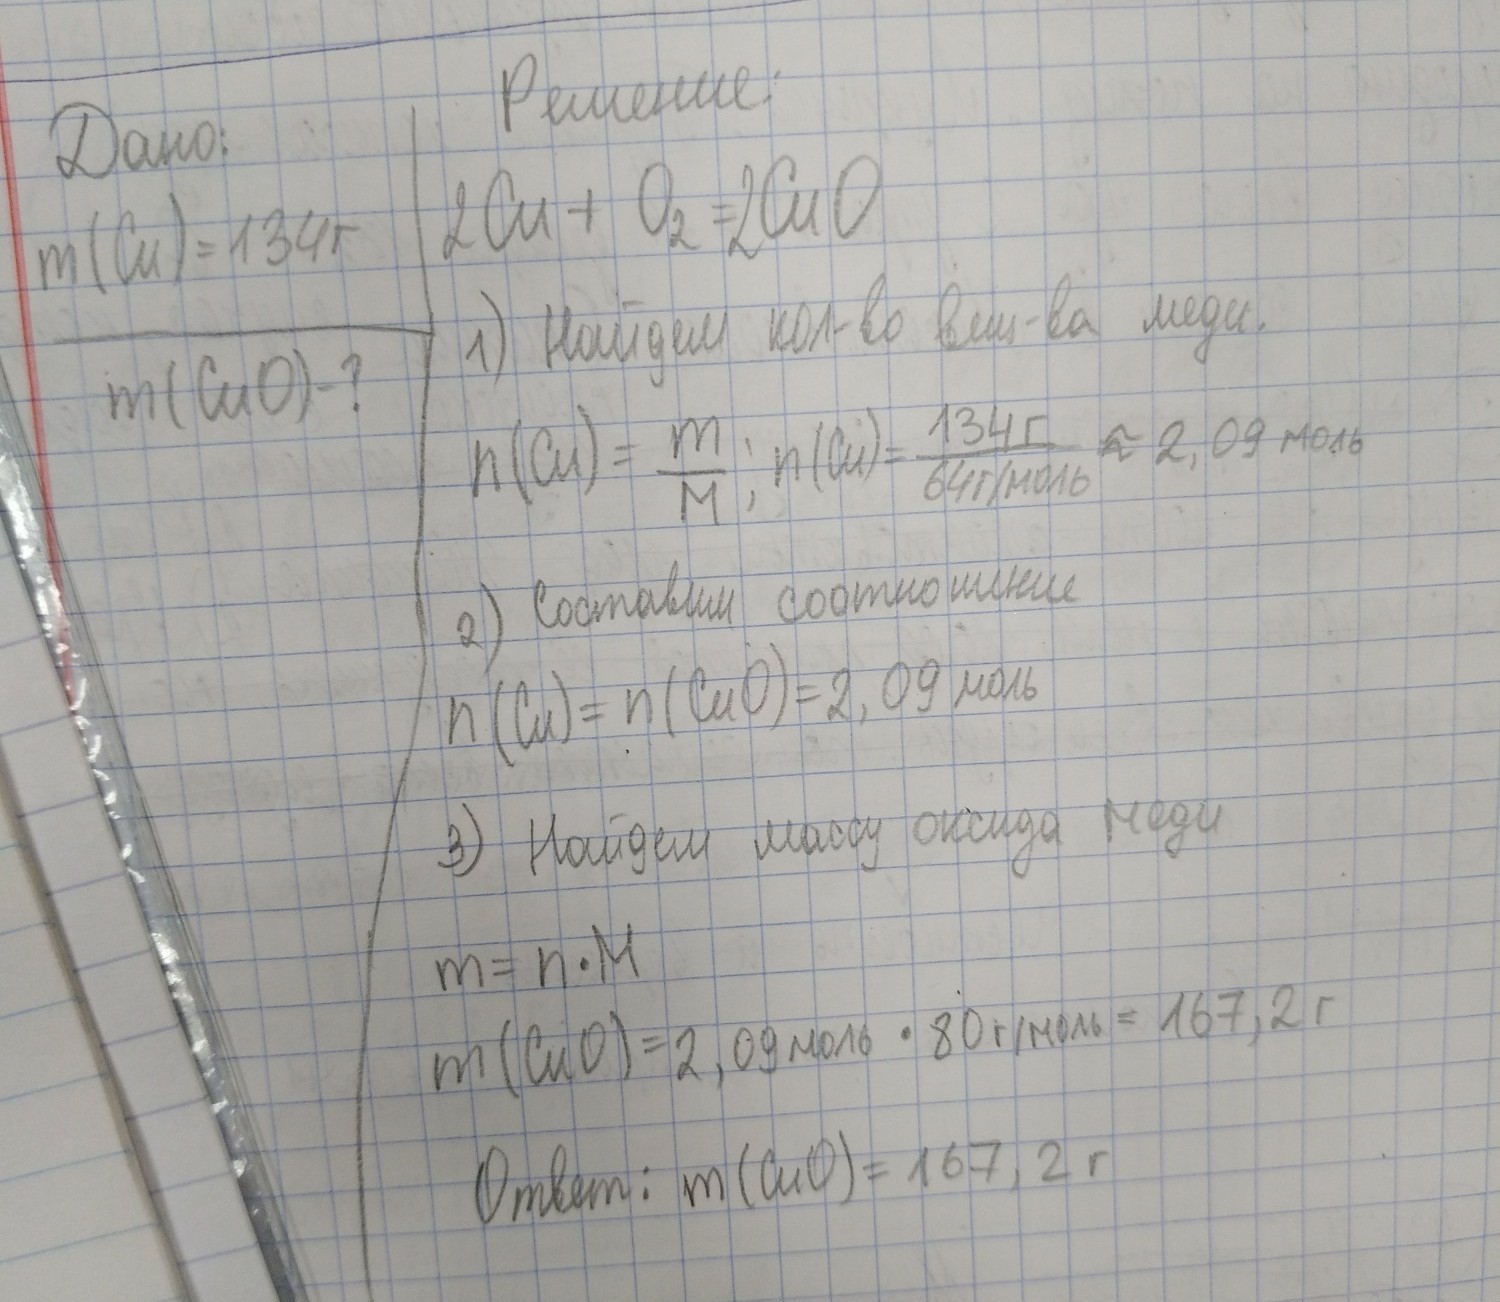 Решение:
Дано:
m(Cu)=134г
m(CuO)-?
2Cu+ O₂=2CuO
1) Найдем кол-во вещ-ва меди.
n(Cu)= m/M; n(Cu)= 134г/64г/моль ≈ 2,09 моль
2) Составим соотношение
n(Cu)= n(CuO)=2,09 моль
3) Найдем массу оксида меди
m= n·M
m(CuO)=2,09 моль · 80 г/моль = 167,2 г
Ответ: m(CuO)= 167,2 г